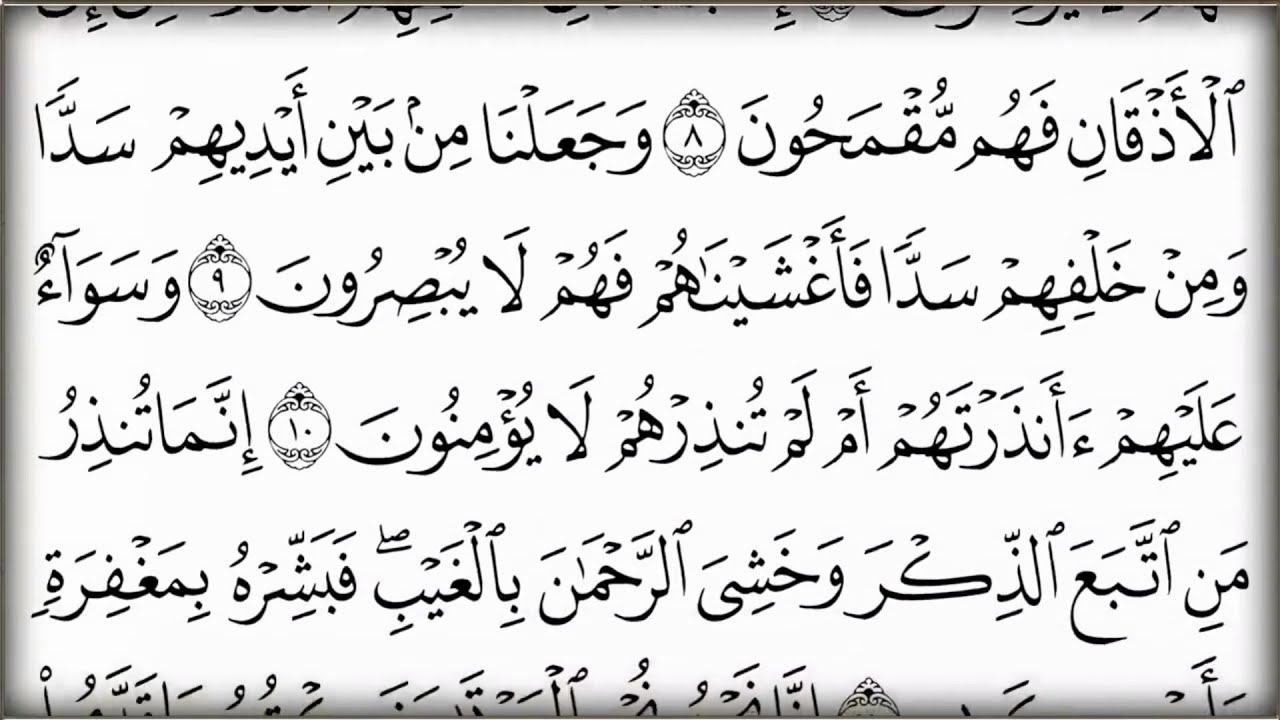 ٱلْأَذْقَانِ فَهُم مُّقْمَحُونَ ۝٨ وَجَعَلْنَا مِنۢ بَيْنِ أَيْدِيهِمْ سَدًّا
وَمِنْ خَلْفِهِمْ سَدًّا فَأَغْشَيْنَٰهُمْ فَهُمْ لَا يُبْصِرُونَ ۝٩ وَسَوَآءٌ
عَلَيْهِمْ ءَأَنذَرْتَهُمْ أَمْ لَمْ تُنذِرْهُمْ لَا يُؤْمِنُونَ ۝١٠ إِنَّمَا تُنذِرُ
مَنِ ٱتَّبَعَ ٱلذِّكْرَ وَخَشِىَ ٱلرَّحْمَٰنَ بِٱلْغَيْبِ ۖ فَبَشِّرْهُ بِمَغْفِرَةٍ